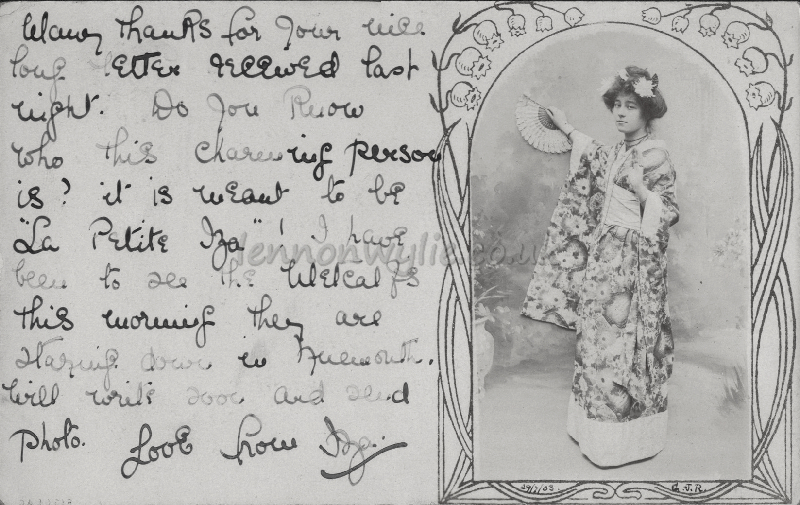 Many thanks for your nice
long letter received last
night. Do you know
who this charming person
is? it is meant to be
"La Petite Iza"! I have
been to see the Metcalfs
this morning they are
staying down in Tynemouth.
Will write soon and send
photo. Love from Iza.
lennonwylie.co.uk
C.J.R.